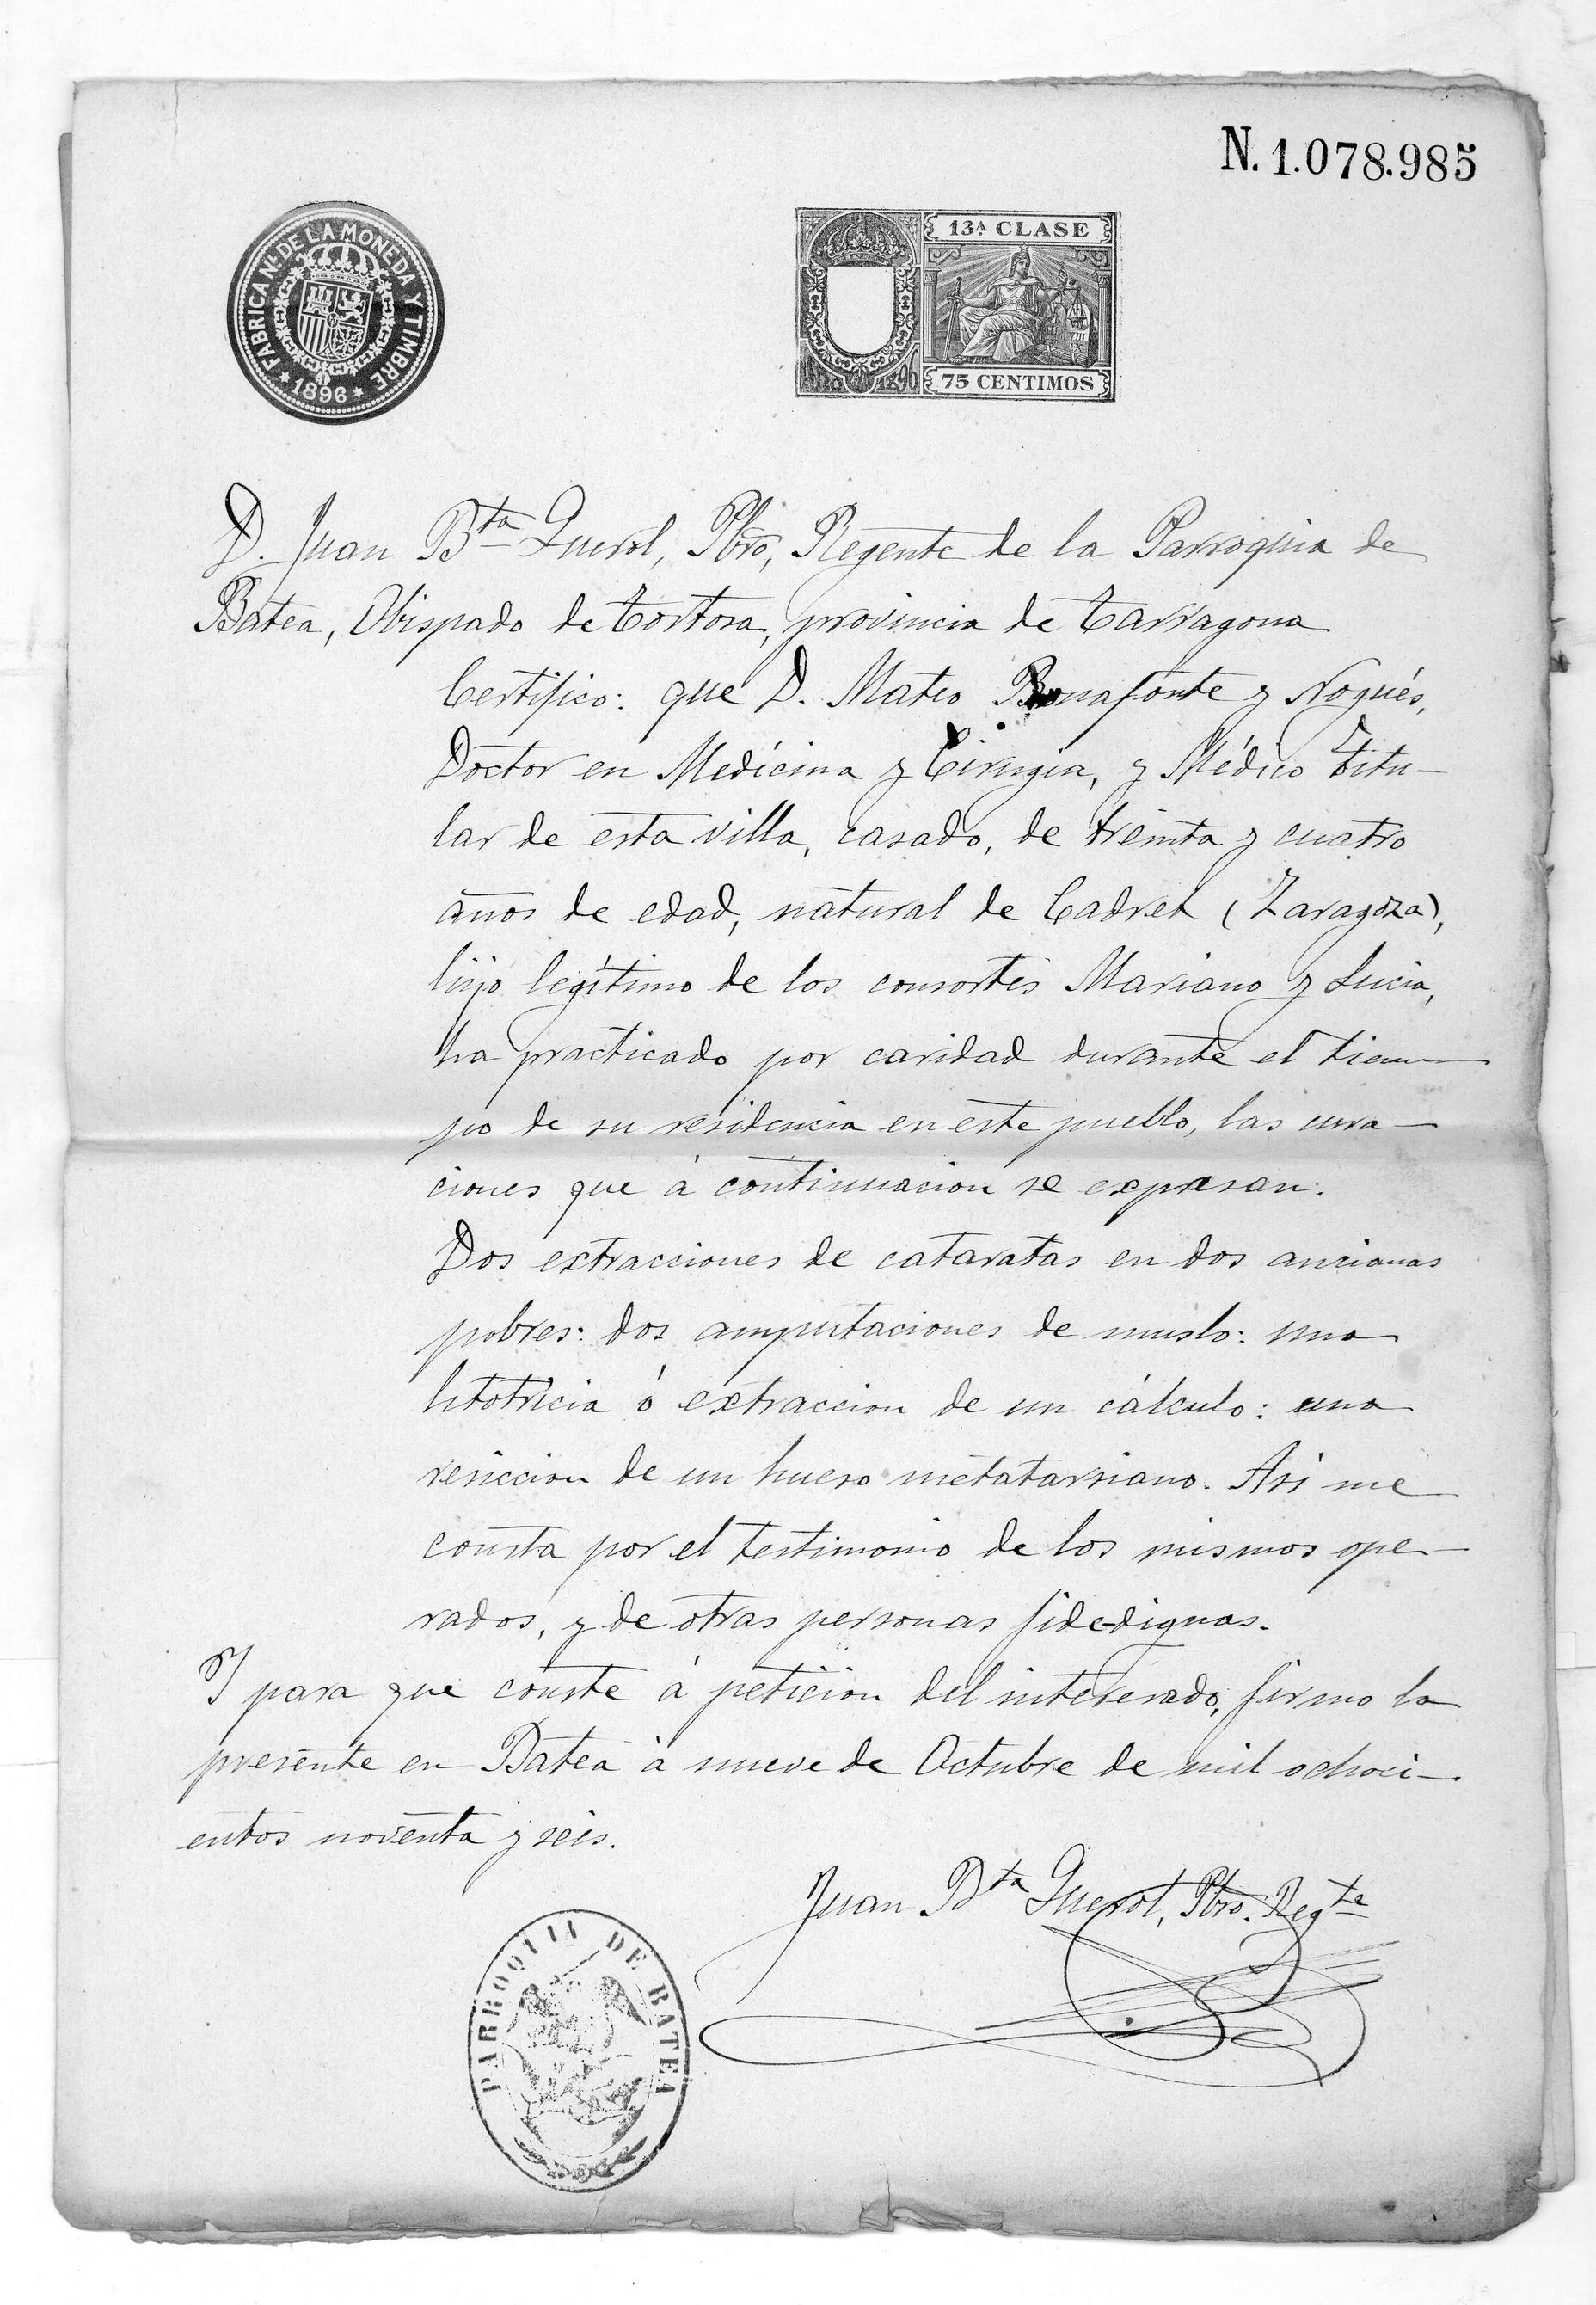 N. 1.078.985
FABRICA Nal DE LA MONEDA Y TIMBRE
* 1896 *
13ª CLASE
75 CENTIMOS
Año 1896
D. Juan Bta Querol, Pbro, Regente de la Parroquia de
Batea, Obispado de Tortosa, provincia de Tarragona
Certifico: que D. Mateo Bonafonte y Nogués,
Doctor en Medícina y Cirugia, y Médico titu-
lar de esta villa, casado, de treinta y cuatro
años de edad, natural de Cadret (Zaragoza),
hijo legítimo de los consortes Mariano y Lucia,
ha practicado por caridad durante el tiem-
po de su residencia en este pueblo, las cura-
ciones que á continuacion se expresan:
Dos extracciones de cataratas en dos ancianas
pobres: dos amputaciones de muslo: una
litotricia ó extraccion de un cálculo: una
reseccion de un hueso metatarsiano. Asi me
consta por el testimonio de los mismos ope-
rados, y de otras personas fide-dignas.
Y para que conste á peticion del interesado, firmo la
presente en Batea á nueve de Octubre de mil ochoci-
entos noventa y seis.
Juan Bta Querol, Pbro. Regte
PARROQUIA DE BATEA